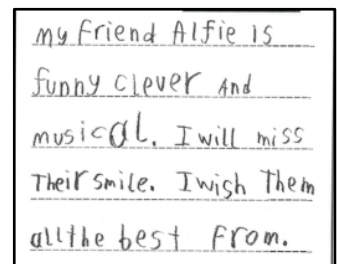 my Friend Alfie is
funny clever And
musicaL. I will miss
Their smile. I wish Them
all the best From.